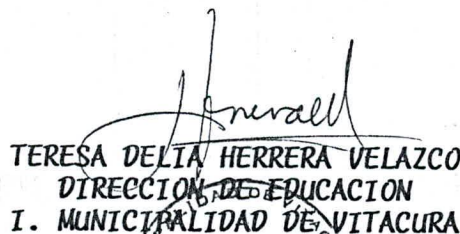 TERESA DELIA HERRERA VELAZCO
DIRECCION DE EDUCACION
I. MUNICIPALIDAD DE VITACURA